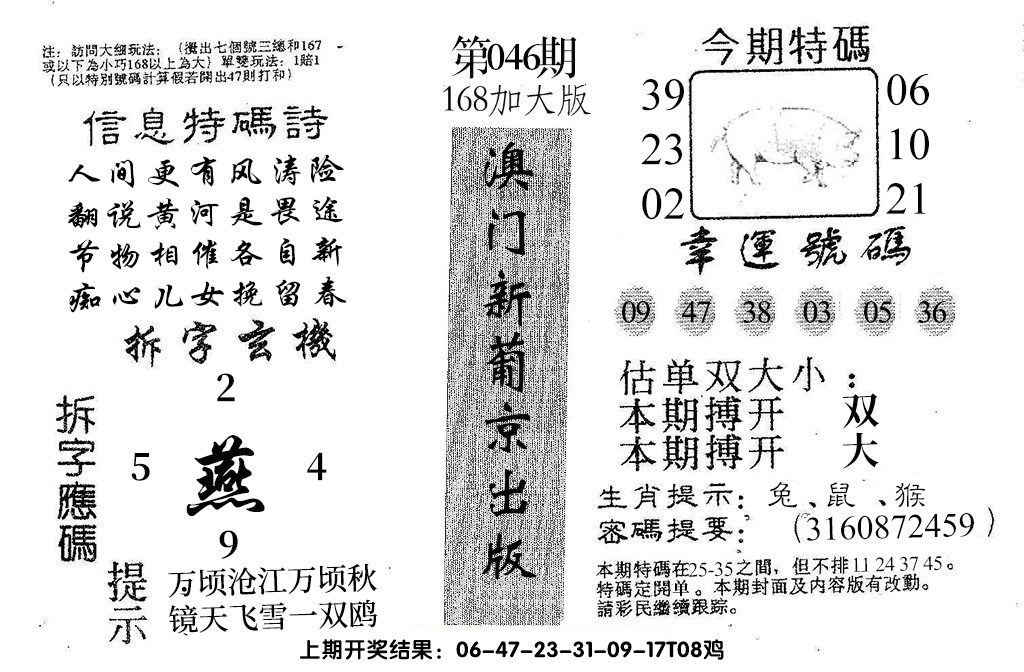 注：訪問大細玩法：（攪出七個號三總和167
或以下為小巧168以上為大）單雙玩法：1賠1
（只以特別號碼計算假若開出47則打和）
信息特碼詩
人间更有风涛险
翻说黄河是畏途
节物相催各自新
痴心儿女挽留春
拆字玄機
2
5 燕 4
9
拆字應碼
提示
万顷沧江万顷秋
镜天飞雪一双鸥
第046期
168加大版
澳门新葡京出版
今期特碼
39 06
23 10
02 21
幸運號碼
09 47 38 03 05 36
估单双大小：
本期搏开 双
本期搏开 大
生肖提示：兔、鼠、猴
密碼提要：（3160872459）
本期特碼在25-35之間，但不排11 24 37 45。
特碼定開单。本期封面及内容版有改動。
請彩民繼續跟踪。
上期开奖结果：06-47-23-31-09-17T08鸡